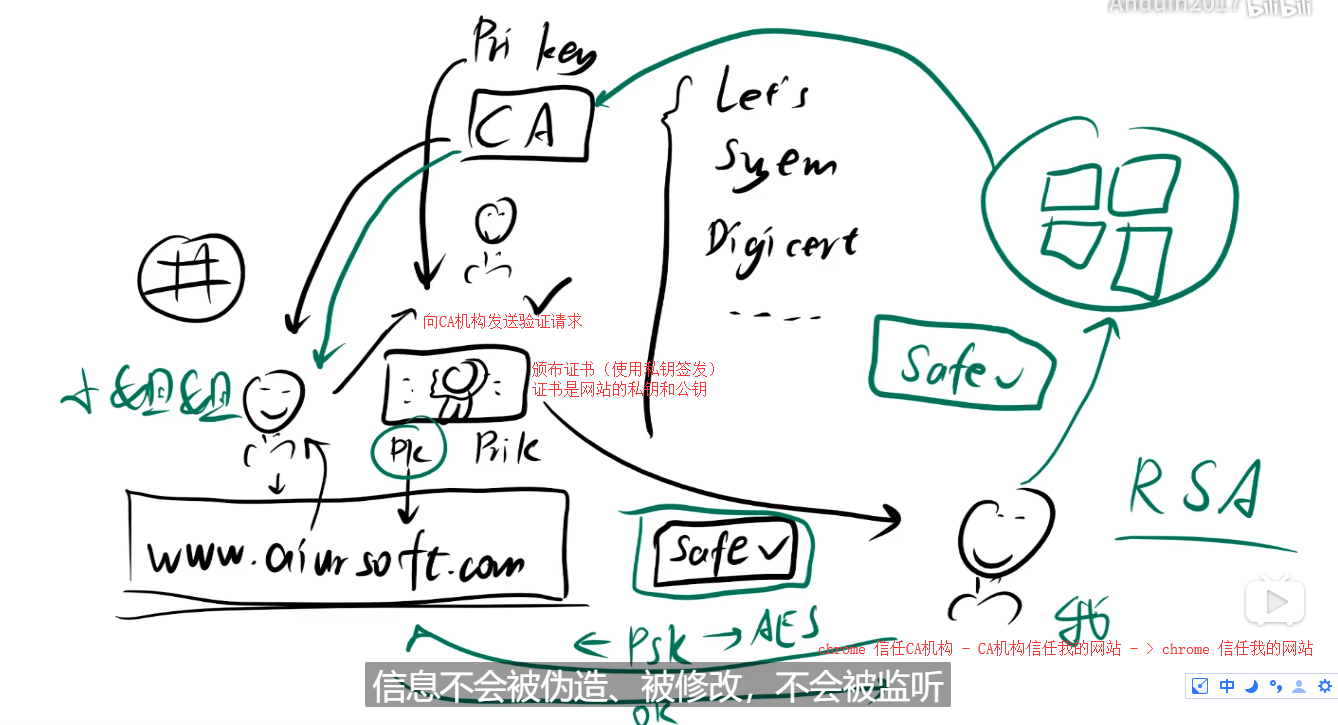 Anduin2017 bilibili
Pri key
CA
Let's
Syem
Digicert
向CA机构发送验证请求
颁布证书（使用私钥签发）
证书是网站的私钥和公钥
Safe
小姐姐
Pk
Prik
RSA
www.aiursoft.com
Safe
我
← Psk → AES
chrome 信任CA机构 - CA机构信任我的网站 - > chrome 信任我的网站
信息不会被伪造、被修改，不会被监听
OK
中